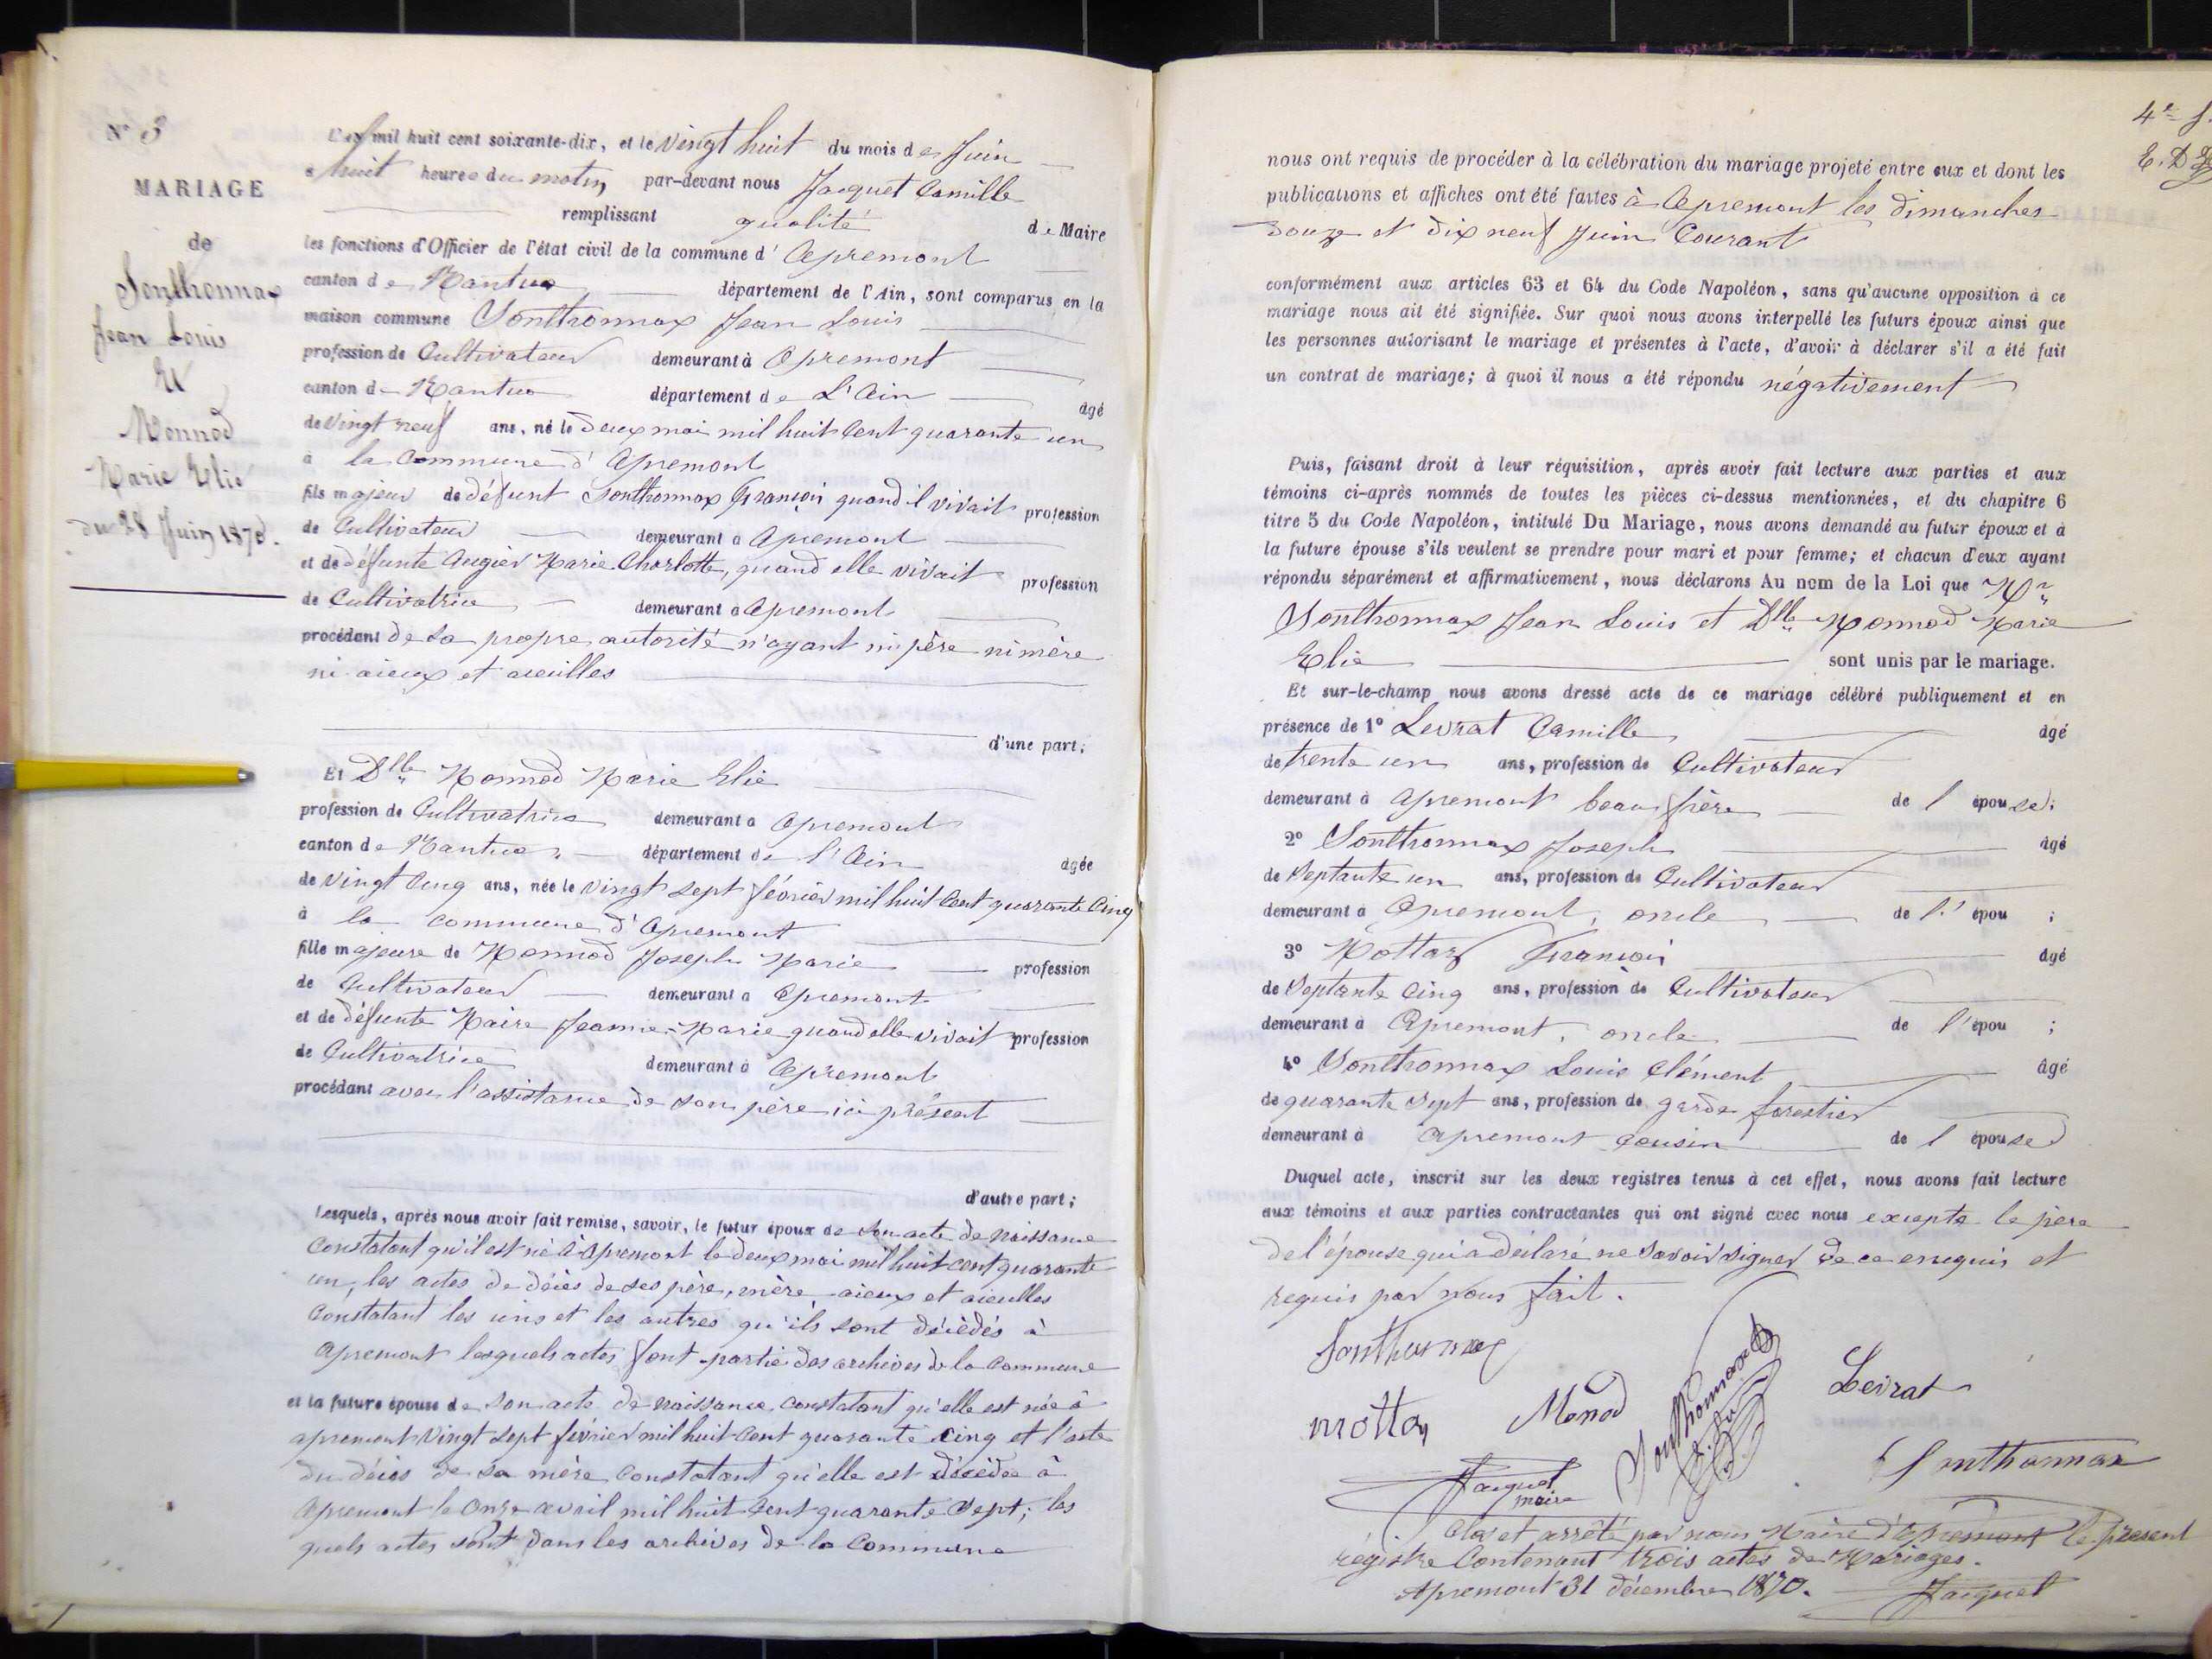 N° 3
MARIAGE
de
Sonthonnax
Jean Louis
Et
Monnod
Marie Elie
du 28 Juin 1870.
L'an mil huit cent soixante-dix, et le vingt huit du mois de Juin
à huit heures du matin par-devant nous Jacquet Camille
remplissant qualité de Maire
les fonctions d'Officier de l'état civil de la commune d' Apremont
canton de Nantua département de l'Ain, sont comparus en la
maison commune Sonthonnax Jean Louis
profession de Cultivateur demeurant à Apremont
canton de Nantua département de L'Ain âgé
de vingt neuf ans, né le deux mai mil huit cent quarante un
à la commune d'Apremont
fils majeur de défunt Sonthonnax François quand il vivait profession
de Cultivateur demeurant à Apremont
et de défunte Augier Marie Charlotte, quand elle vivait profession
de Cultivatrice demeurant à Apremont
procédant de sa propre autorité n'ayant ni père ni mère
ni aieux et aieuilles
d'une part;
Et Dlle Monnod Marie Elie
profession de Cultivatrice demeurant à Apremont
canton de Nantua département de l'Ain âgée
de vingt cinq ans, née le vingt sept février mil huit cent quarante cinq
à la commune d'Apremont
fille majeure de Monnod Joseph Marie profession
de Cultivateur demeurant à Apremont
et de défunte Maire Jeanne-Marie quand elle vivait profession
de Cultivatrice demeurant à Apremont
procédant avec l'assistance de son père ici présent
d'autre part;
Lesquels, après nous avoir fait remise, savoir, le futur époux de son acte de naissance
constatant qu'il est né à Apremont le deux mai mil huit cent quarante
un, les actes de décès de ses père, mère, aieux et aieulles
constatant les uns et les autres qu'ils sont décédés à
Apremont lesquels actes font partie des archives de la commune
et la future épouse de son acte de naissance constatant qu'elle est née à
apremont vingt sept février mil huit cent quarante cinq et l'acte
du décès de sa mère constatant qu'elle est décédée à
Apremont le onze avril mil huit cent quarante sept; les
quels actes sont dans les archives de la commune
4e f.
E. D
nous ont requis de procéder à la célébration du mariage projeté entre eux et dont les
publications et affiches ont été faites à Apremont les dimanches
douze et dix neuf Juin Courant
conformément aux articles 63 et 64 du Code Napoléon, sans qu'aucune opposition à ce
mariage nous ait été signifiée. Sur quoi nous avons interpellé les futurs époux ainsi que
les personnes autorisant le mariage et présentes à l'acte, d'avoir à déclarer s'il a été fait
un contrat de mariage; à quoi il nous a été répondu négativement
Puis, faisant droit à leur réquisition, après avoir fait lecture aux parties et aux
témoins ci-après nommés de toutes les pièces ci-dessus mentionnées, et du chapitre 6
titre 5 du Code Napoléon, intitulé Du Mariage, nous avons demandé au futur époux et à
la future épouse s'ils veulent se prendre pour mari et pour femme; et chacun d'eux ayant
répondu séparément et affirmativement, nous déclarons Au nom de la Loi que Mr
Sonthonnax Jean Louis et Dlle Monnod Marie
Elie sont unis par le mariage.
Et sur-le-champ nous avons dressé acte de ce mariage célébré publiquement et en
présence de 1° Levrat Camille âgé
de trente un ans, profession de Cultivateur
demeurant à Apremont beau frère de l'épouse;
2° Sonthonnax Joseph âgé
de Septante un ans, profession de Cultivateur
demeurant à Apremont, oncle de l'épou ;
3° Mottaz François âgé
de Septante cinq ans, profession de Cultivateur
demeurant à Apremont, oncle de l'épou ;
4° Sonthonnax Louis Clément âgé
de quarante sept ans, profession de garde forestier
demeurant à Apremont cousin de l'épouse
Duquel acte, inscrit sur les deux registres tenus à cet effet, nous avons fait lecture
aux témoins et aux parties contractantes qui ont signé avec nous excepté le père
de l'épouse qui a déclaré ne savoir signer de ce enequis et
requis par nous fait.
Sonthonnax
Levrat
Mottaz
Monod
Sonthonnax
Jacquet
maire
Sonthonnax
Clos et arrêté par nous Maire d'Apremont le présent
régistre Contenant trois actes de Mariages.
Apremont 31 décembre 1870.
Jacquet